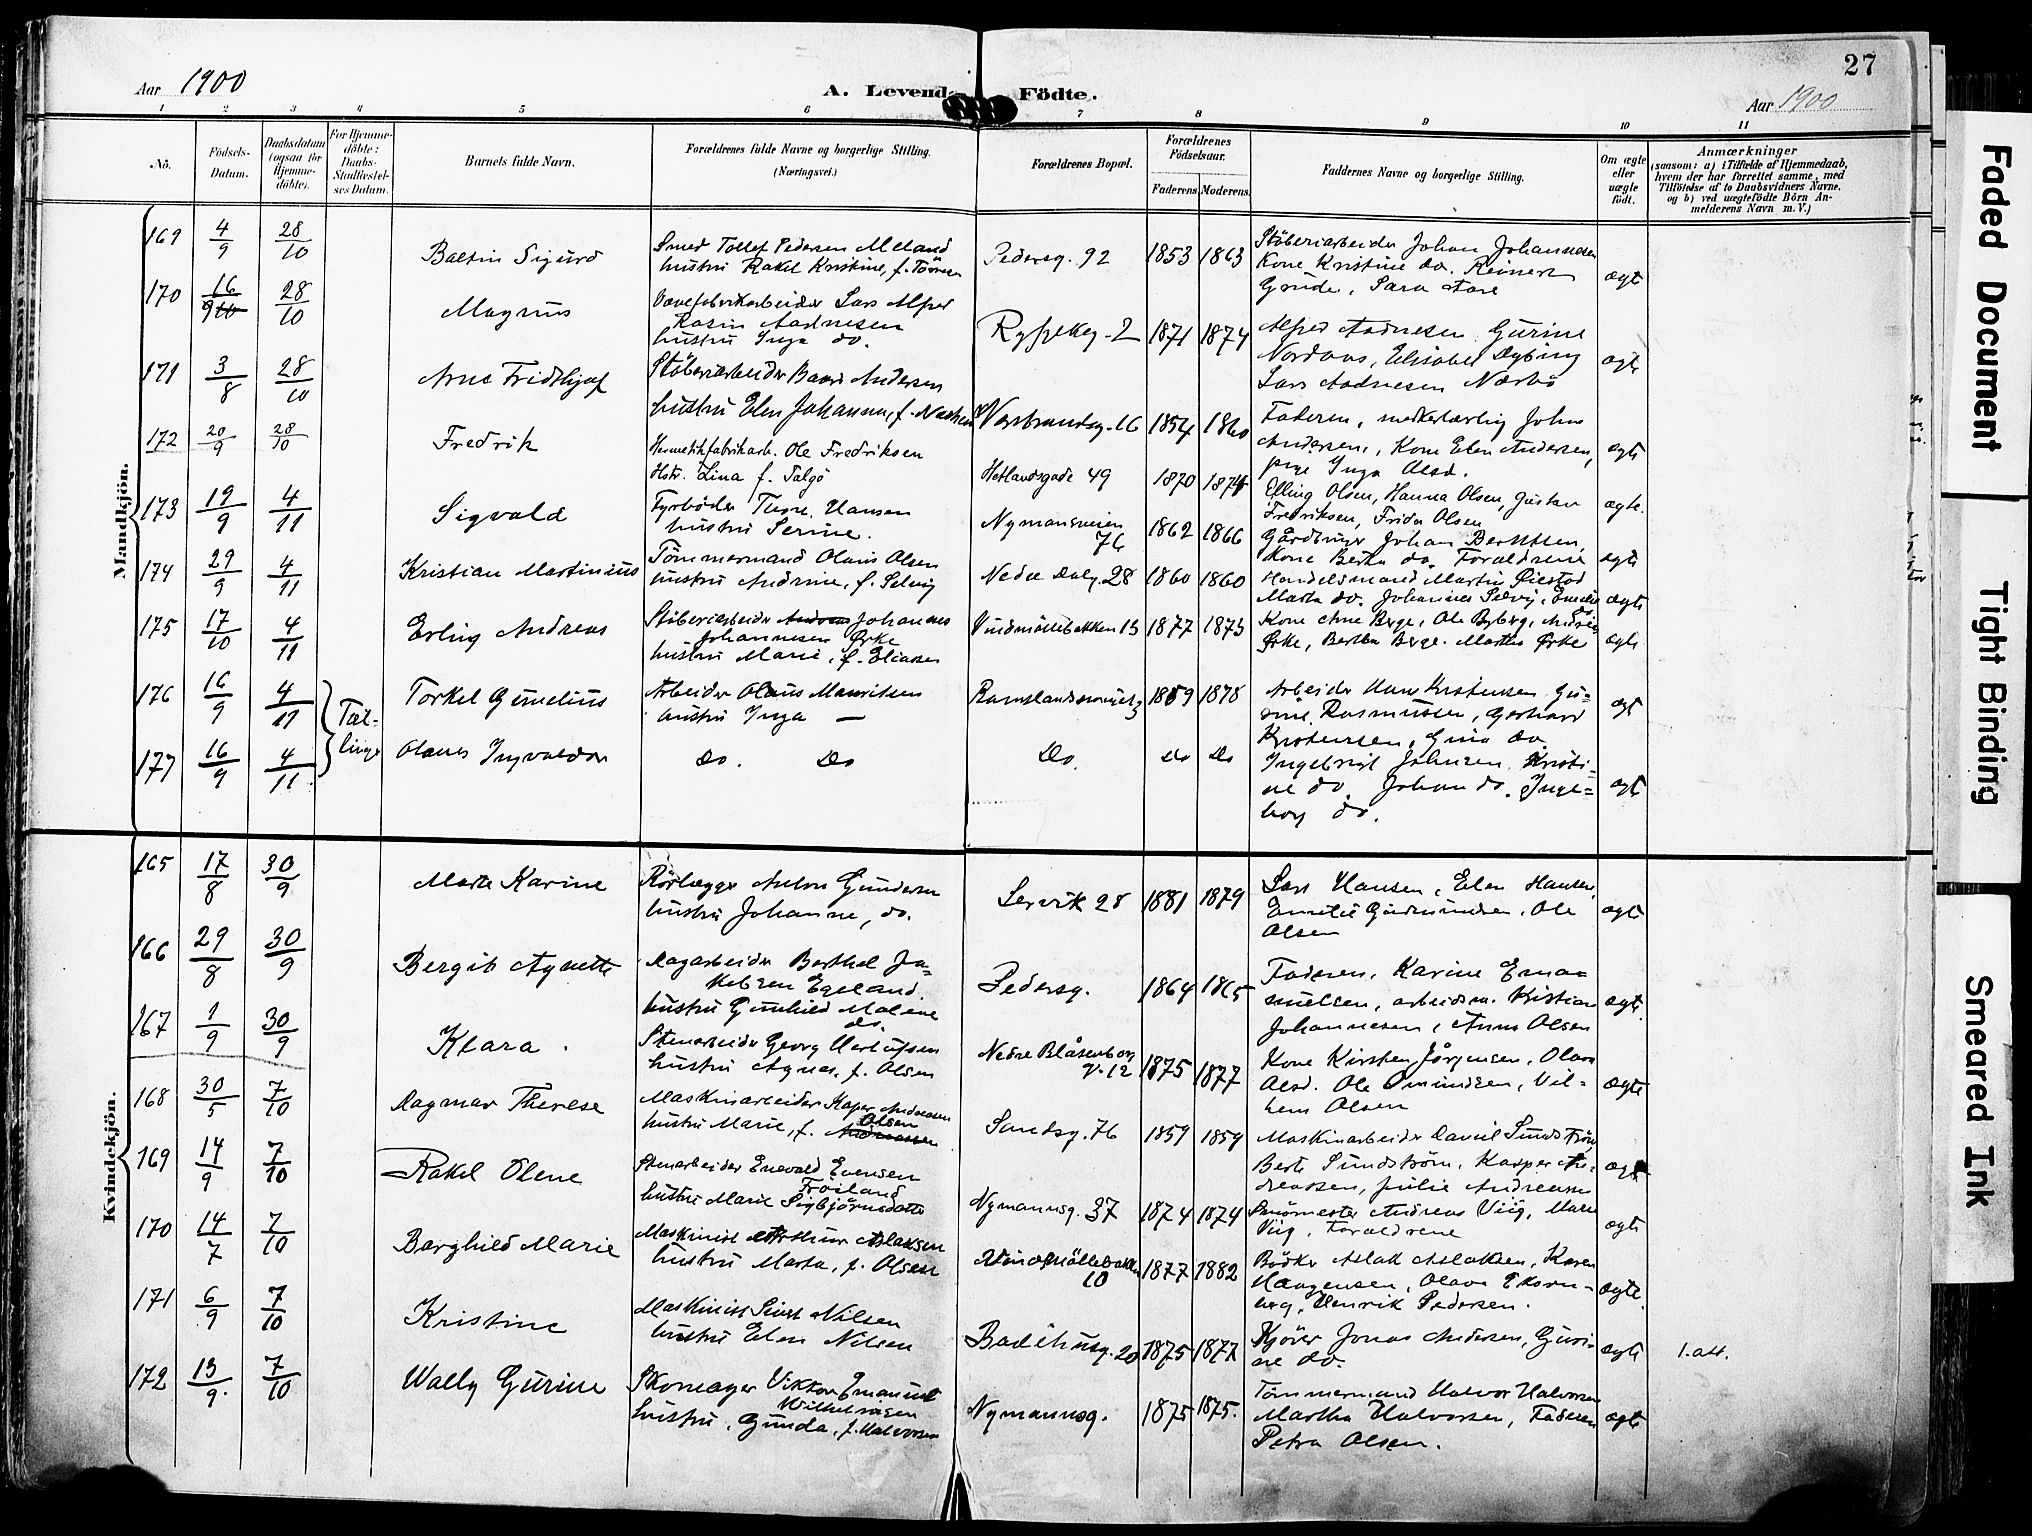 27
Aar 1900
A. Levende Födte.
Aar 1900
1 2 3 4 5 6 7 8 9 10 11
No. Födsels-Datum. Daabsdatum (ogsaa för Hjemme-döbte). For Hjemme-döbte: Daabs-Stadfæstel-ses Datum. Barnets fulde Navn. Forældrenes fulde Navne og borgerlige Stilling. (Næringsvei.) Forældrenes Bopæl. Forældrenes Födselsaar. Faderens Moderens. Faddernes Navne og borgerlige Stilling. Om ægte eller uægte födt. Anmærkninger (saasom: a) i Tilfælde af Hjemmedaab, hvem der har forrettet samme, med Tilföielse af to Daabsvidners Navne, og b) ved uægtefödte Börn An-melderens Navn m. V.)
Mandkjön.
169 4/9 28/10 Baltin Sigurd Smed Tollef Pedersen Meland
hustru Rakel Kristine, f. Pedersg. 92 1853 1863 Stöberiarbeider Johan Johannesen
Kone Kristine do. Reinert
Grude, Sara ægt
170 16/9 28/10 Magnus Lars Alfred
Rasin Aadnesen
hustru Inga do. Ryfylkeg. 2 1871 1874 Alfred Aadnesen Gurine
Nordaas, Elisabet Dybing
Lars Aadnesen Nærbö ægt
171 3/8 28/10 Arne Fridthjof Stöberiarbeider Baard Andersen
hustru Elen Johanna, f. 16 1854 1860 Faderen, Johns
Andersen, Kone Elen Andersen,
pige Inga ægt
172 20/9 28/10 Fredrik Hermetikfabrikarb. Ole Fredriksen
Hstr. Lina f. Talgö Hetlandsgade 49 1870 1874 Elling Olsen, Hanna Olsen, Gustav
Fredriksen, Frida Olsen ægte.
173 19/9 4/11 Sigvald Fyrböder Tore Hansen
hustru Serine. Nymansveien
76 1862 1866 Johan Berntsen,
Kone Berta do. Foraldrene ægt
174 29/9 4/11 Kristian Martinius Tömmermand Olaus Olsen
hustru Andrine, f. Selvig Nedre Dalg. 28 1860 1860 Handelsmand Martin
Marta do. Johannes Selvig, ægt
175 17/10 4/11 Erling Andreas Stöberiarbeider Johannes
Johannesen Örke
hustru Marie, f. Eliasen Vindmöllebakken 13 1877 1873 Kone Ane Berge, Ole Byberg,
Örke, Bertha Berge. Martha Örke ægt
176 16/9 4/11 Tvil-linge Torkel Gunelius Arbeider Olaus Mauritsen
hustru Inga — 1859 1878 Arbeider Hans Kristensen Gu-
rine Rasmussen, Gerhard
Kristensen, Gina do. ægt
177 16/9 4/11 Olaus Ingvaldor do. Do Do. do Do Ingebrigt Johnsen Kristi-
ne do. Johan do. Inge-
borg do. ægt
Kvindekjön.
165 17/8 30/9 Marta Karine Rörlægger Anton Gundersen
hustru Johanne, do. Lervik 28 1881 1879 Lars Hansen, Elen Hansen,
Emilie Gudmundsen, Ole
Olsen ægt
166 29/8 30/9 Bergit Agnette Dagarbeider Berthel Ja-
kobsen Egeland.
hustru Gunhild Malene
do. Pedersg. 1864 1865 Faderen, Karine Ema-
nuelsen, arbeidsm. Kristian
Johannesen, Anna Olsen ægt.
167 1/9 30/9 Klara. Stenarbeider Georg
hustru Agnes, f. Olsen Nedre Blåsenborg
g. 12 1875 1877 Kone Kirsten Jörgensen, Olava
Ole Omundsen, Vil-
helm Olsen ægte
168 30/5 7/10 Dagmar Therese Maskinarbeider Kasper Andreasen
hustru Marie, f. Olsen Sandsg. 76 1859 1859 Maskinarbeider Daniel Sundström
Berte Sundström, Kasper An-
dreassen, Julie Andreasen ægt
169 14/9 7/10 Rakel Olene Stenarbeider Enevald Evensen
Fröiland
hustru Marie Sigbjörnsdatter Nymannsg. 37 1874 1874 Andreas Viig, Marie
Viig, Foraldrene ægt
170 14/7 7/10 Borghild Marie Maskinist Arthur Aslaksen
hustru Marta, f. Olsen Vindmöllebakken
10 1877 1882 Bödker Aslak Aslaksen, Karen
Haagensen, Olava Ekorn-
berg, Henrik Pedersen. ægte.
171 6/9 7/10 Kristine Maskinist Sivert Nilsen
hustru Elen Nilsen Badehusg. 20 1875 1877 Kjörer Jonas Andersen, Guri-
ne do. ægt 1. att.
172 13/9. 7/10 Wally Gurine Skomager Viktor Emanuel
Wilhelmsen
hustru, Gunda, f. Halvorsen Nymannsg. 1875 1875. Tömmermand Halvor Halvorsen
Martha Halvorsen, Faderen
Petra Olsen. ægt
Faded Document
Tight Binding
Smeared Ink